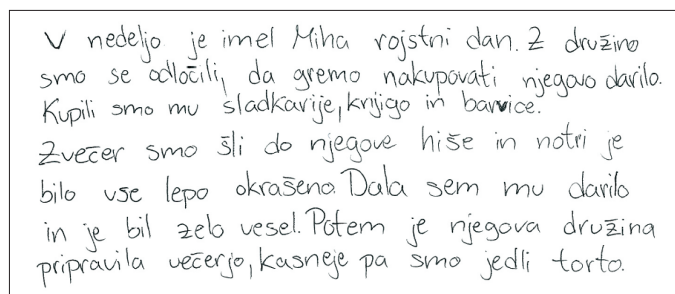 V nedeljo je imel Miha rojstni dan. Z družino
smo se odločili, da gremo nakupovati njegovo darilo.
Kupili smo mu sladkarije, knjigo in barvice.
Zvečer smo šli do njegove hiše in notri je
bilo vse lepo okrašeno. Dala sem mu darilo
in je bil zelo vesel. Potem je njegova družina
pripravila večerjo, kasneje pa smo jedli torto.